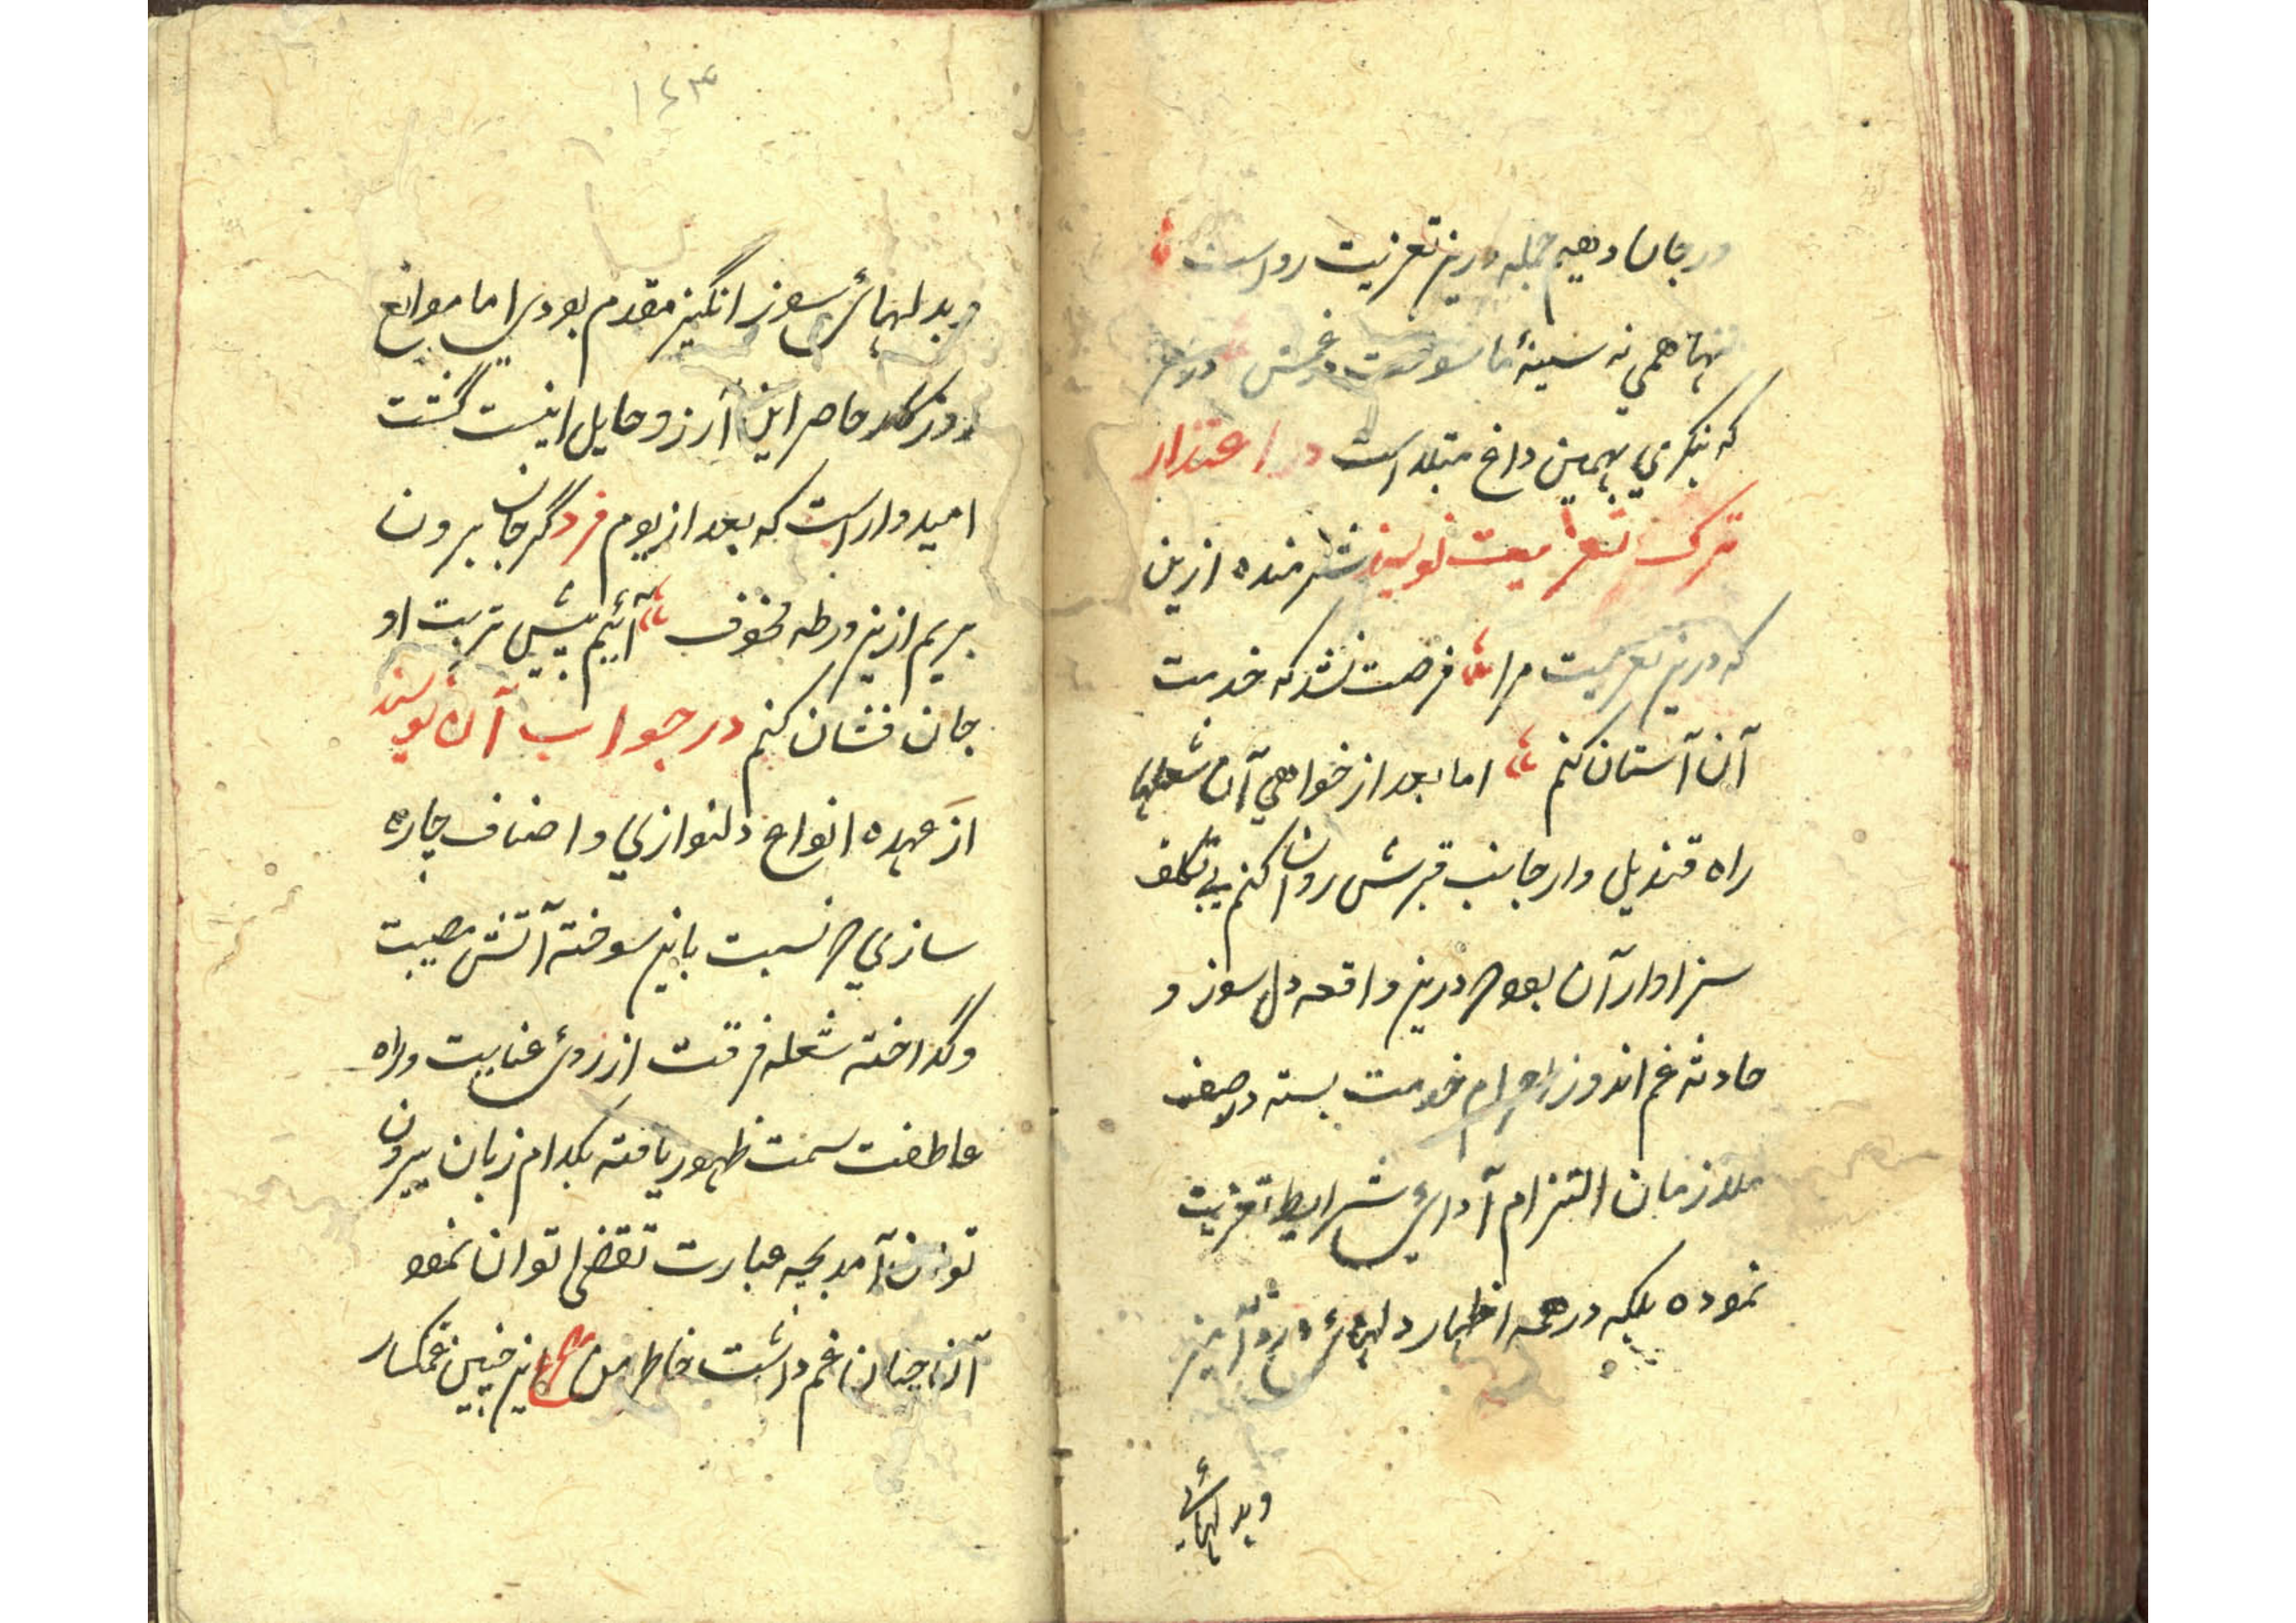 در جان دهیم جمله درین تعزیت رواست
تنها همی نه سینهٔ ما سوخت
که بنگری بهمین داغ مبتلا است در اعتذار
ترک تعزیت نویسند شرمنده ازین
که درین تعزیت مرا فرصت نشد که خدمت
آن آستان کنم اما بعد از خواهی آن شعلها
راه قندیل وار جانب قبرش روان کنم بی تکلف
سزاوار آن بود که درین واقعه دل سوز و
حادثه غم اندوز احرام خدمت بسته در صف
ملازمان التزام آدای شرایط تعزیت
نموده بلکه در همه اظهار دلهای درد آمیز
و بدلهائی
۱۴۳
و بدلهائ سوز انگیز مقدم بودی اما موانع
روزکار حاصر این آرزو حایل اینست گشت
امیدوار است که بعد از یوم فرد گر جان برون
بریم ازین ورطه مخوف آئیم پیش تربت او
جان فشان کنم در جواب آن نویسند
از عهده انواع دلنوازی و اصناف چاره
سازی که نسبت باین سوخته آتش مصیبت
و گداخته شعله فرقت از روئ عنایت و راه
عاطفت سمت ظهور یافته بکدام زبان بیرون
توان آمد بچه عبارت تقضی توان نمود
آنرا چنان غم داشت خاطر من ع این چنین غمکسار